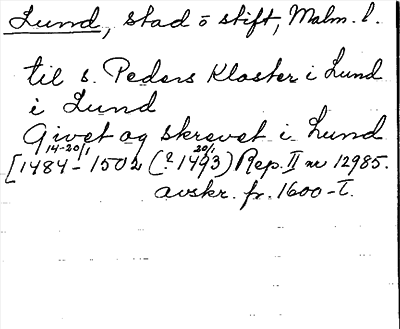 Lund, stad o stift, Malm. l.
til s. Peders Kloster i Lund
i Lund
Givet og skrevet i Lund
14-20/1 20/1
[1484-1502 (?1493) Rep. II nr 12985.
avskr. fr. 1600-t.